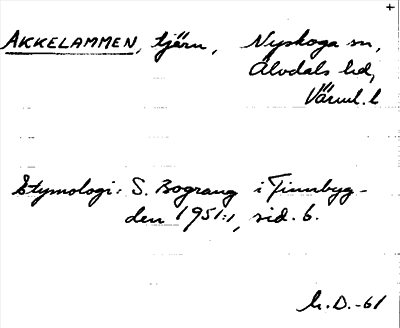 +
AKKELAMMEN, tjärn, Nyskoga sn,
Älvdals hd,
Värml. l
Etymologi: S. Bograng i Finnbyg-
den 1951:1, sid. 6.
h. D. -61